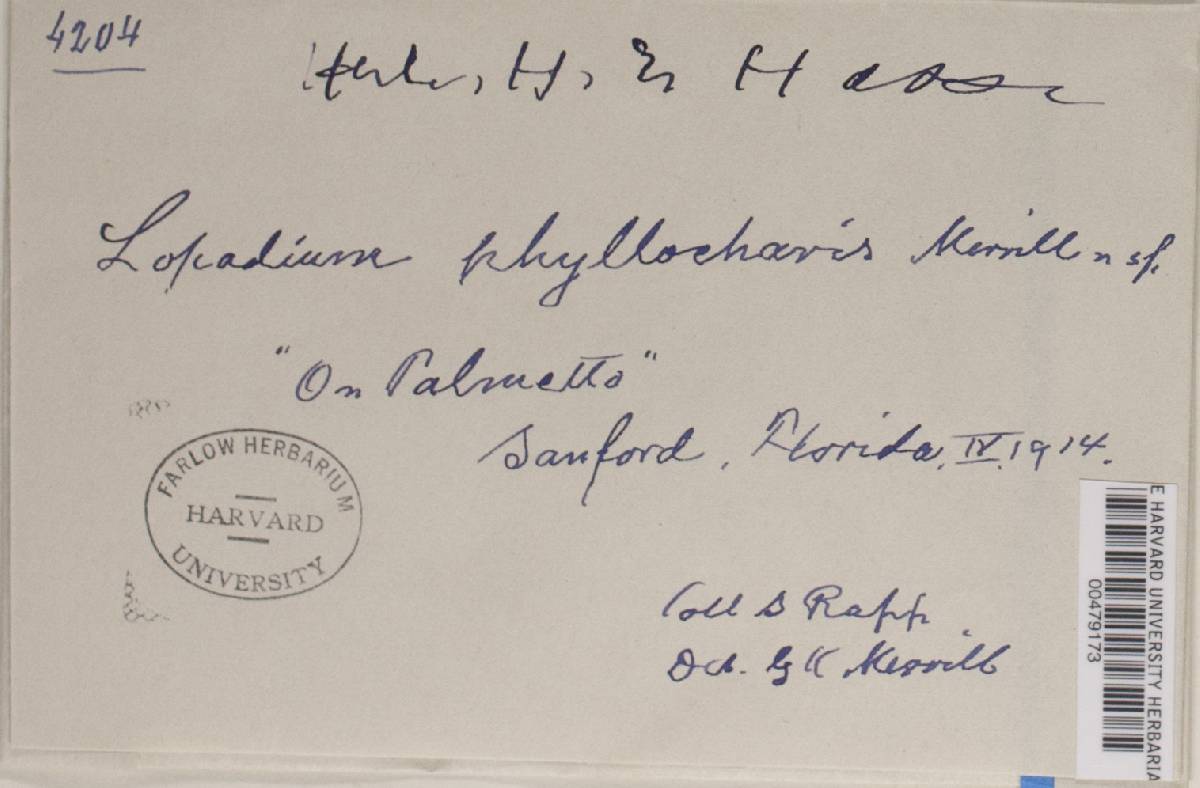 4204
Herb. H. E. Hasse
Lopadium phyllocharis Merrill n sp.
"On Palmetto"
Sanford, Florida, IV. 1914.
FARLOW HERBARIUM
HARVARD
UNIVERSITY
Coll S Rapp.
Det. G K Merrill
E HARVARD UNIVERSITY HERBARIA
00479173